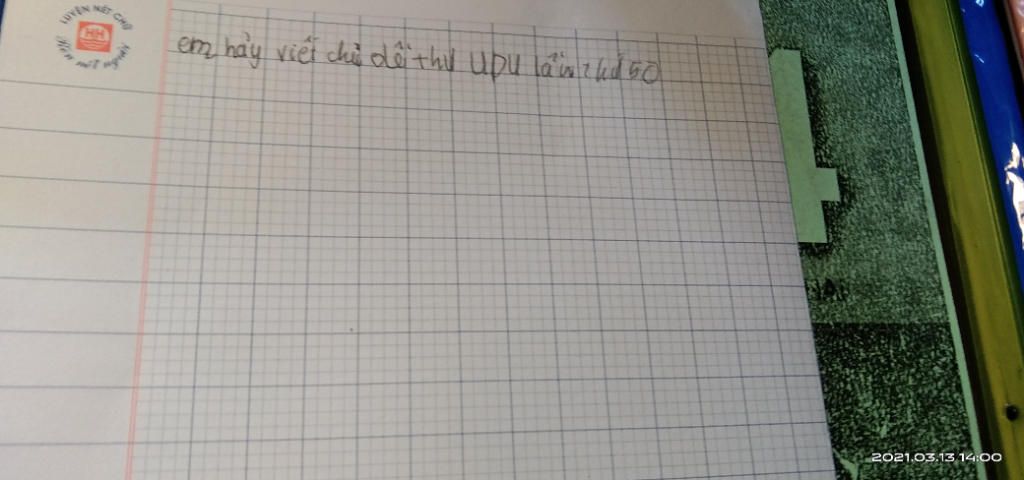 LUYỆN NÉT CHỮ
HH
RÈN NẾT NGƯỜI
em hảy viết chủ dề thư UPU lần thứ 50
2021.03.13 14:00